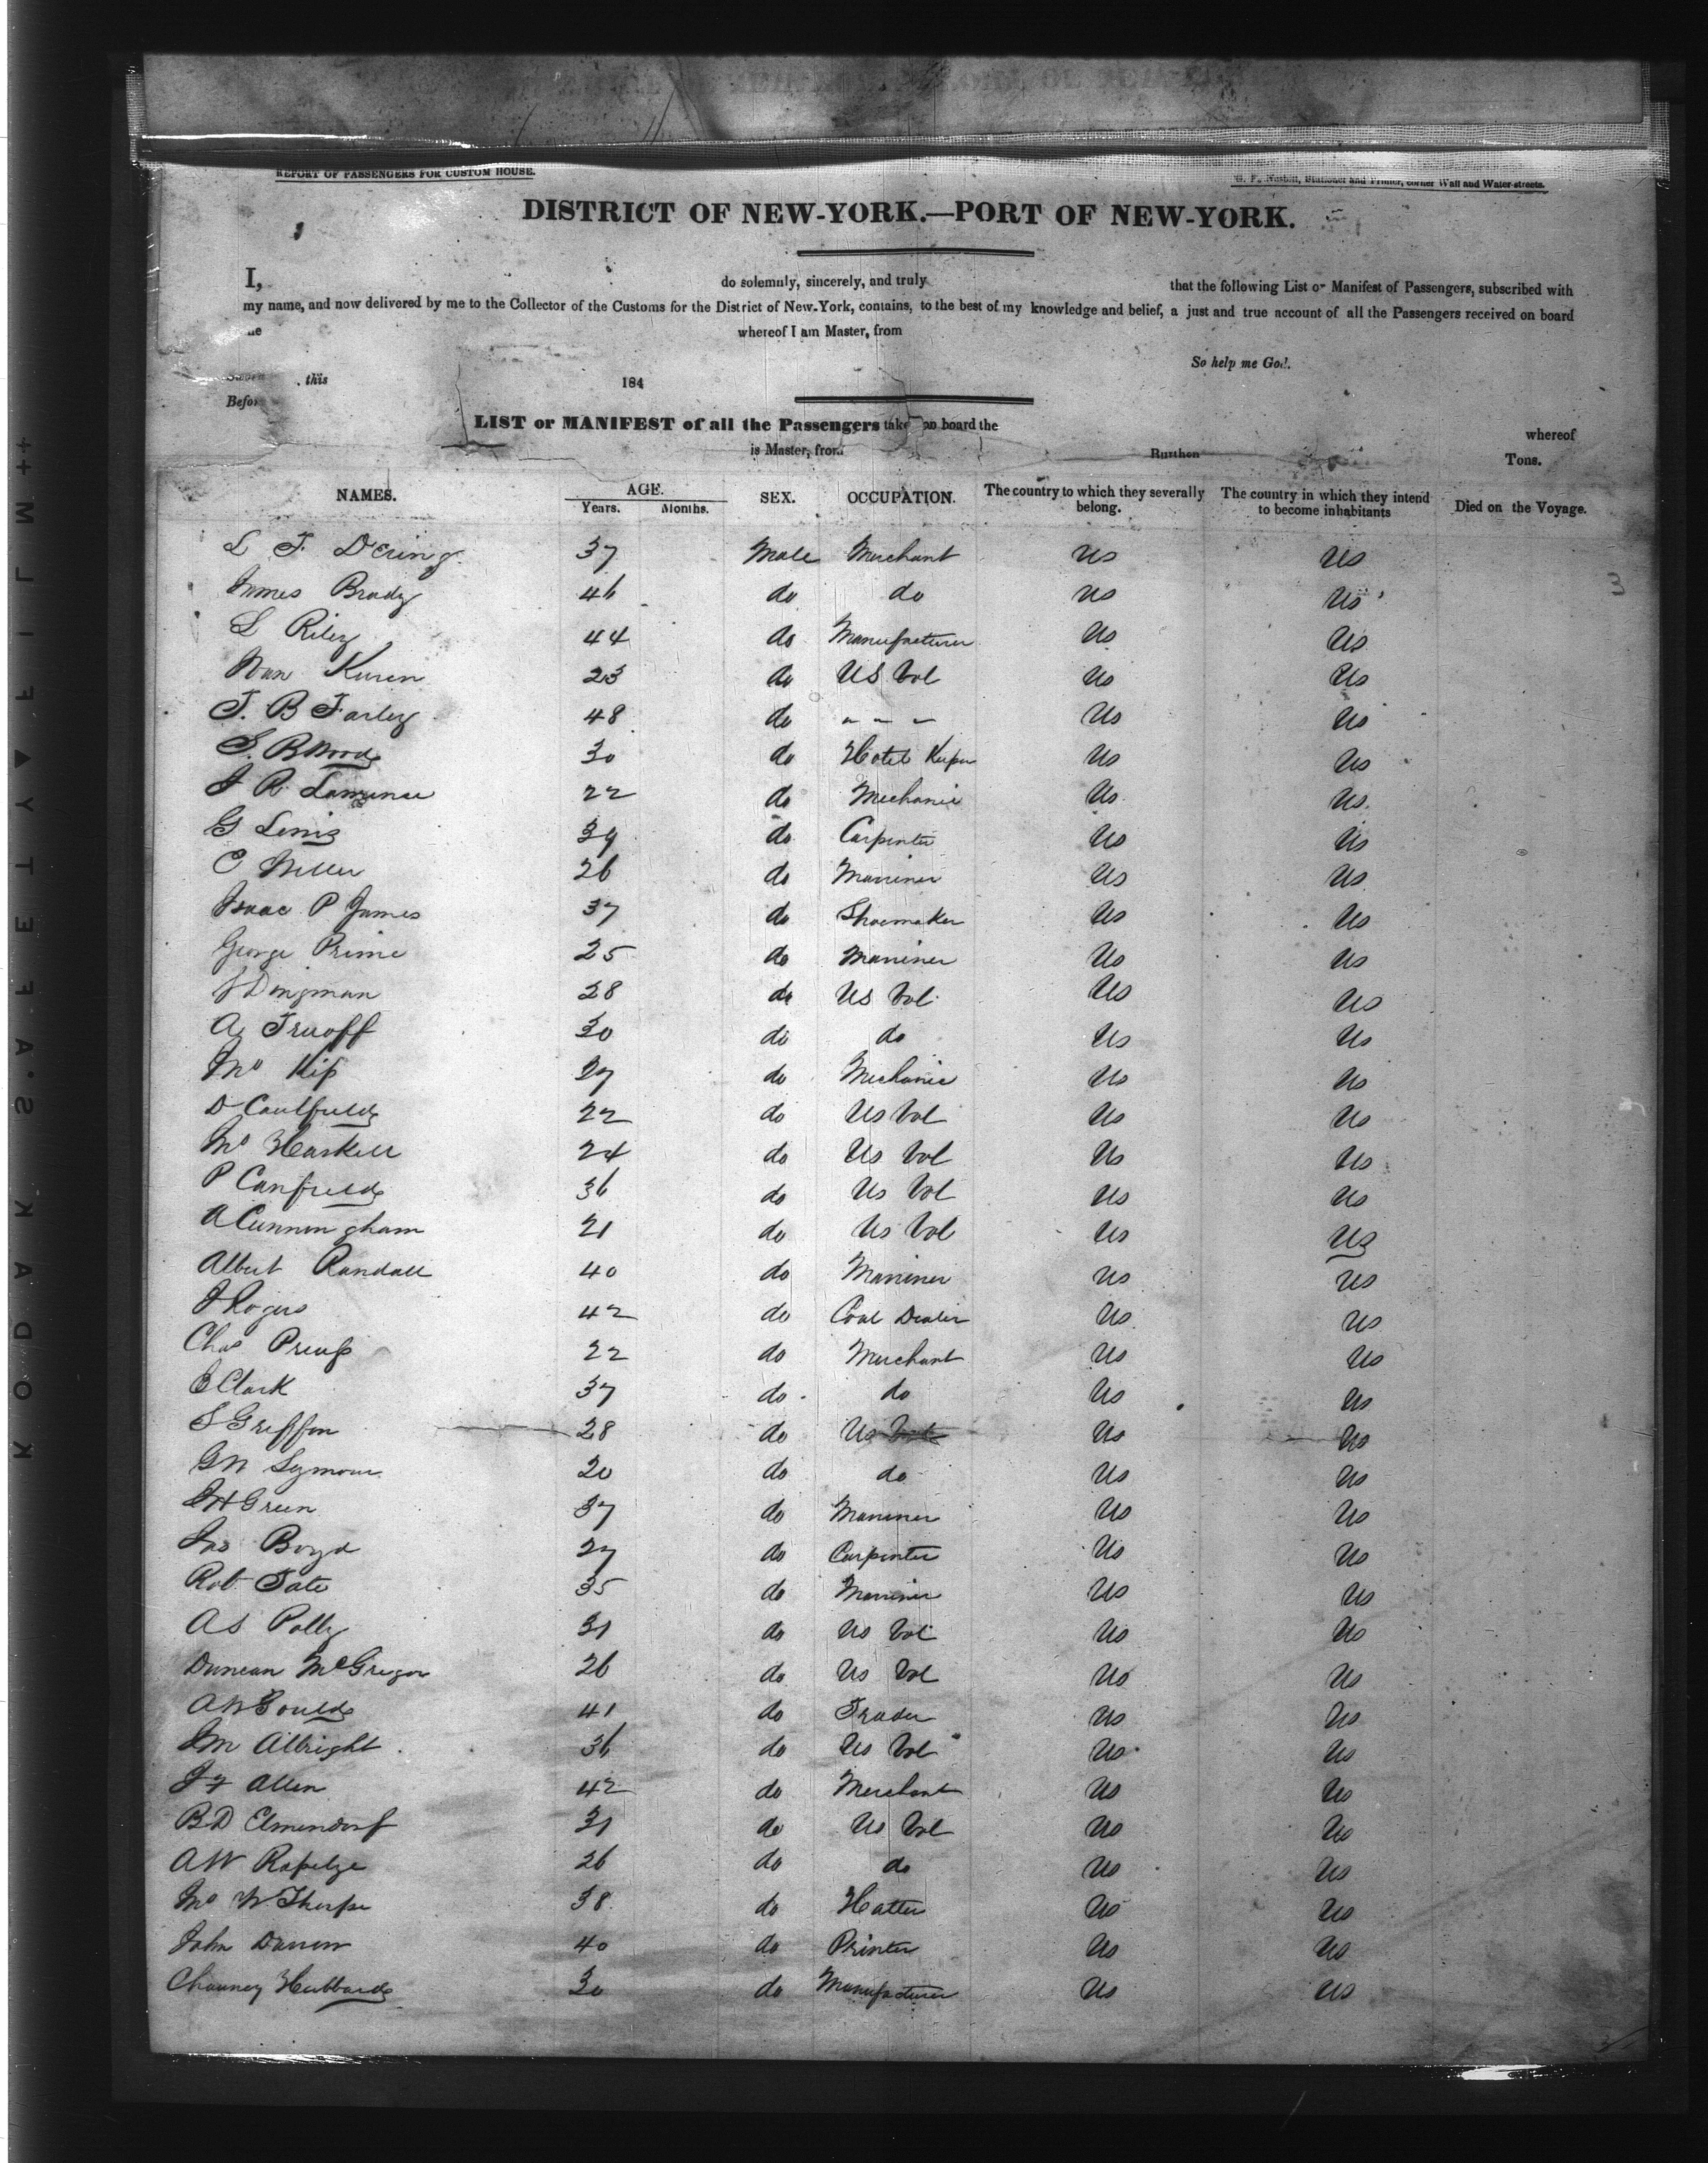 REPORT OF PASSENGERS FOR CUSTOM HOUSE.
G. F. Nesbitt, Stationer and Printer, corner Wall and Water-streets.
DISTRICT OF NEW-YORK.—PORT OF NEW-YORK.
I, do solemnly, sincerely, and truly that the following List or Manifest of Passengers, subscribed with
my name, and now delivered by me to the Collector of the Customs for the District of New-York, contains, to the best of my knowledge and belief, a just and true account of all the Passengers received on board
whereof I am Master, from
So help me God.
Sworn this 184
Before
LIST or MANIFEST of all the Passengers taken on board the whereof
is Master, from Burthen Tons.
NAMES. AGE. SEX. OCCUPATION. The country to which they severally belong. The country in which they intend to become inhabitants Died on the Voyage.
Years. Months.
L F. Dering 37 Male Merchant US US
James Brady 46 do do US US
L Riley 44 do Manufacturer US US
23 do US Vol US US
J. B Farley 48 do " " " US US
S. B Wood 30 do Hotel Keeper US US
J R Lawrence 22 do Mechanic US US
G Lewis 39 do Carpenter US US
C Miller 26 do Mariner US US
Isaac P James 37 do Shoemaker US US
George Prime 25 do Mariner US US
J Dingman 28 do US Vol US US
A Truoff 30 do do US US
Jno Kip 27 do Mechanic US US
D Caulfield 22 do US Vol US US
Jno Haskell 24 do US Vol US US
P Canfield 36 do US Vol US US
A Cunningham 21 do US Vol US US
Albert Randall 40 do Mariner US US
J Rogers 42 do Coal Dealer US US
Chas Preuss 22 do Merchant US US
E Clark 37 do do US US
S Griffin 28 do US Vol US US
G W Seymour 20 do do US US
J H Green 37 do Mariner US US
Jas Boyd 27 do Carpenter US US
Rob Tate 35 do Mariner US US
A S Polly 31 do US Vol US US
Duncan McGregor 26 do US Vol US US
A W Gould 41 do Trader US US
J M Albright 36 do US Vol US US
J F Allen 42 do Merchant US US
B D Elmendorf 31 do US Vol US US
A W Rapelye 26 do do US US
Jno W Thorpe 38 do Hatter US US
John Darrow 40 do Printer US US
Chauncy Hubbard 30 do Manufacturer US US
3
KODAK S.AFETY ▲ FILM ++